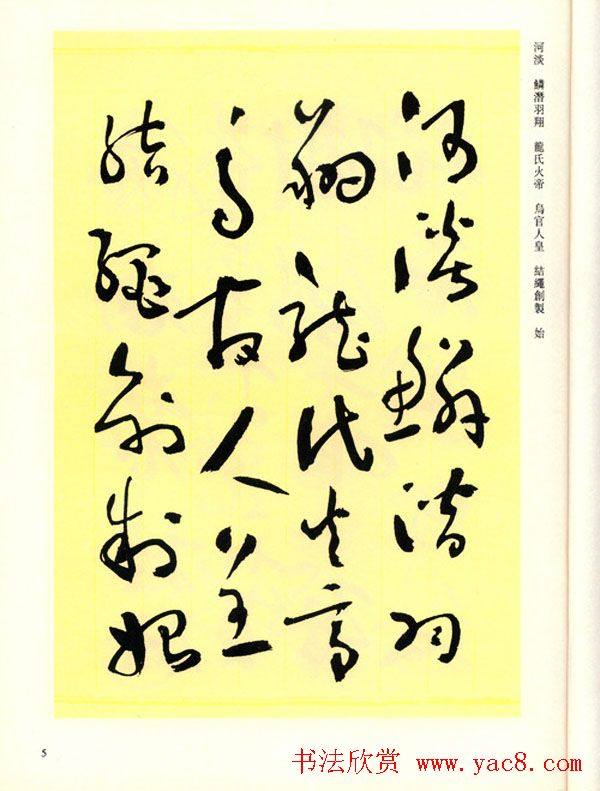 河淡　鱗潛羽翔　龍氏火帝　鳥官人皇　結繩創製　始
河淡鱗潛羽
翔龍氏火帝
鳥官人皇
結繩創制始
5
书法欣赏 www.yac8.com